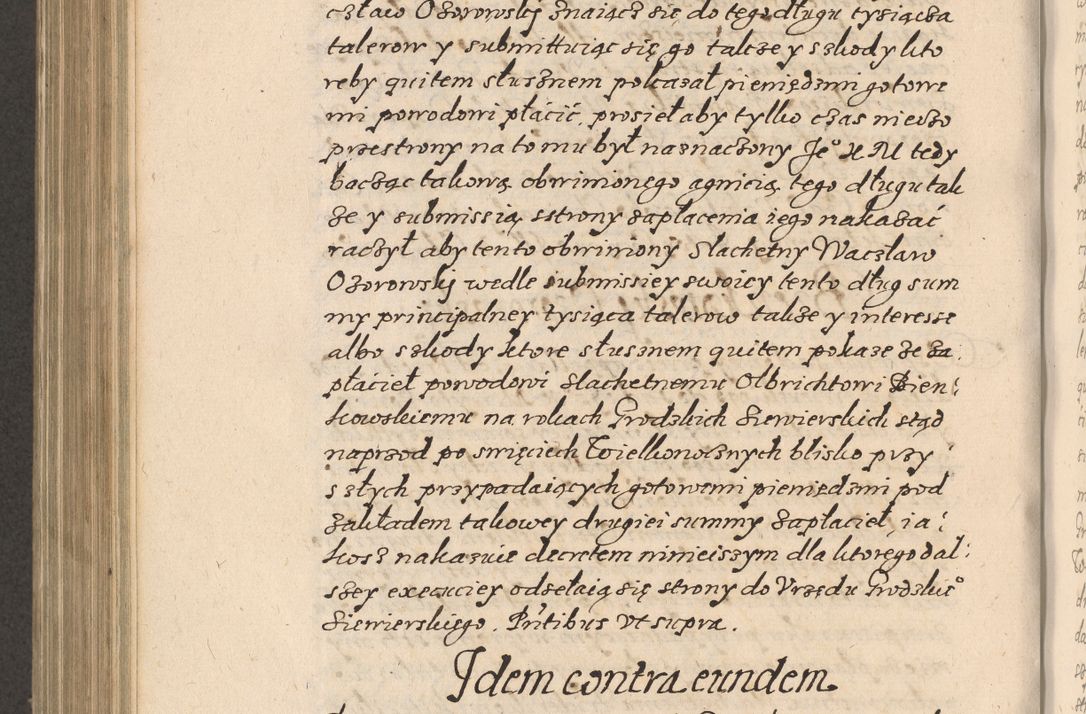 czław Ozorowskij znaiącz się do tego długu tysiącza
talerow y submittuiąc się go talcze y szkody kto
reby quitem słusznem pokazał pieniędzmi gotowe
mi powodowi płacić, prosieł aby tylko czas nieczo
przestrony na to mu był naznaczony Je° X M tedy
bacząc takową obwinionego agnicią tego długu tak
ze y submissią sstrony zapłacenia iego nakazać
raczył aby tento obwiniony Slachetny Waczław
Ozorowskij wedle submissiey swoiey tento dług sum
my principalney tysiąca talerow takze y interesse
albo szkody ktore słusznem quitem pokaze ze za
płacieł powodowi Slachetnemu Olbrichtowi Bien:
kowoskiemu na rokach Grodzkich Siewierskich stąd
naprzod po swięciech Wielkonocznych blisko przy
szłych przypadaiących gotowemi pieniedzmi pod
zakładem takowey drugiei summy zapłacieł, ia:
kosz nakazuie decretem ninieiszym dla ktoregodal:
szey execuciey odsełaią się strony do Vrzędu Grodzkie°
Siewierskiego. Pntibus Vt supra.
Idem contra eundem